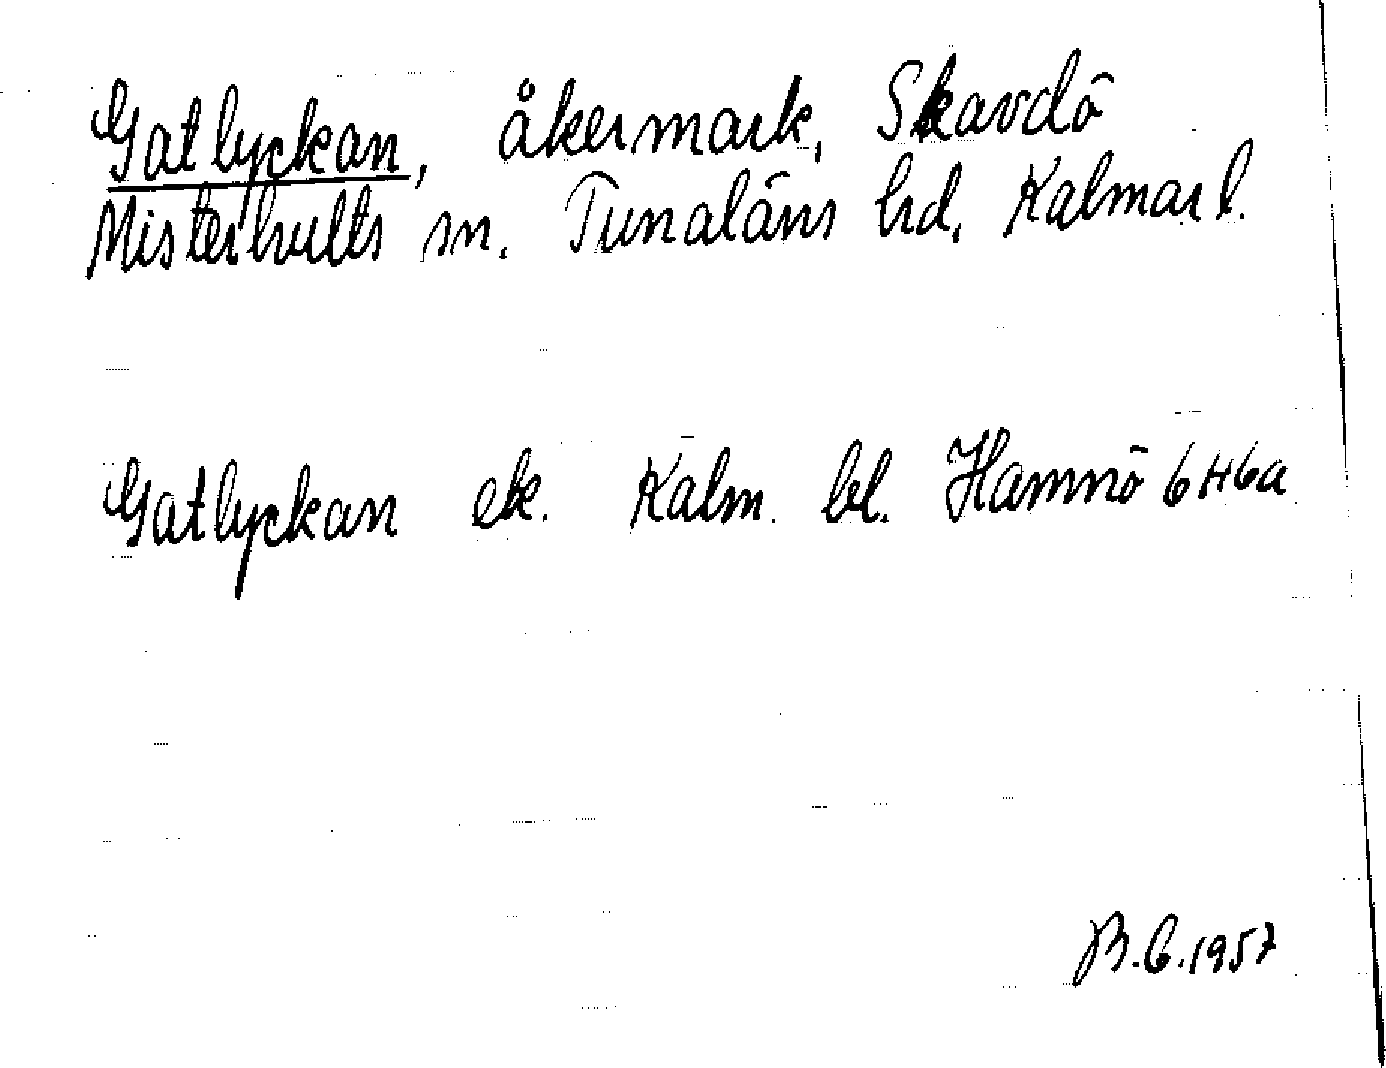 Gatlyckan, åkermark, Skavdö
Misterhults sn. Tunaläns hd. Kalmar l.
Gatlyckan ek. Kalm. bl. Hamnö 6H6a
B.C.1957